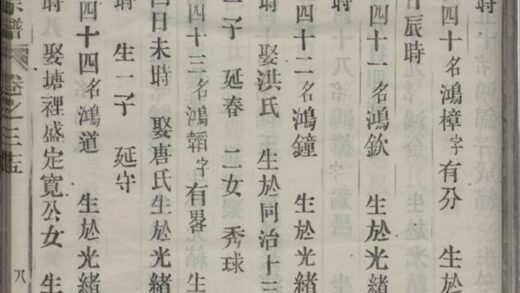 時
四十名鴻樟字有分 生於
日辰時
四十一名鴻欽 生於光緒
四十二名鴻鐘 生於光緒
時娶洪氏 生於同治十三
二子 延春 二女 秀球
四十三名鴻韜字有畧 生
日未時 娶唐氏生於光緒
時 生二子 延守
四十四名鴻道 生於光緒
時 娶塘裡盛定寬公女 生
譜 卷之三 八